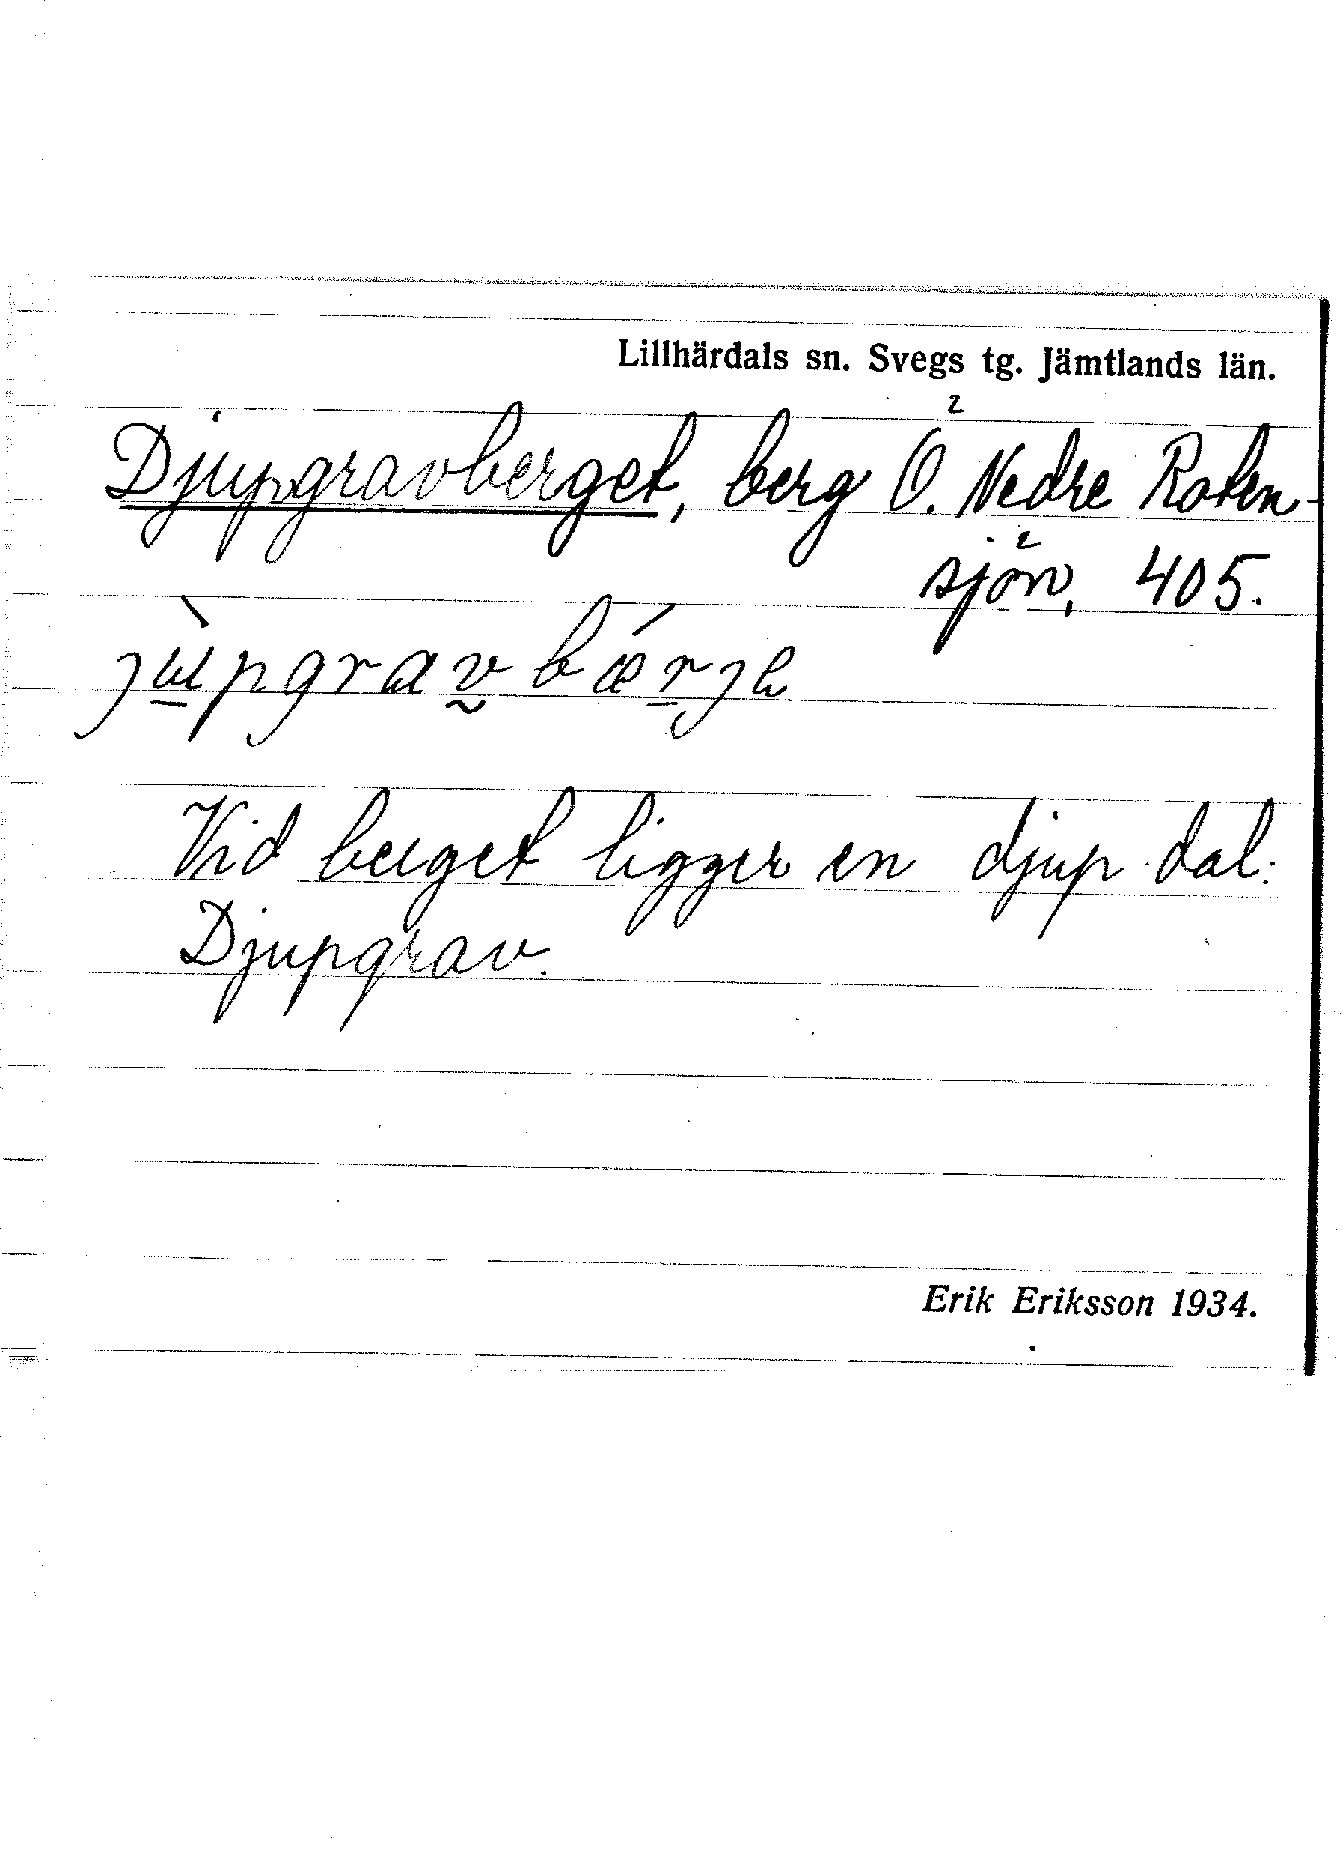 Lillhärdals sn. Svegs tg. Jämtlands län.
Djupgravberget, berg Ö. Nedre Roten-
sjön, 405.
Vid berget ligger en djup dal:
Djupgrav.
Erik Eriksson 1934.